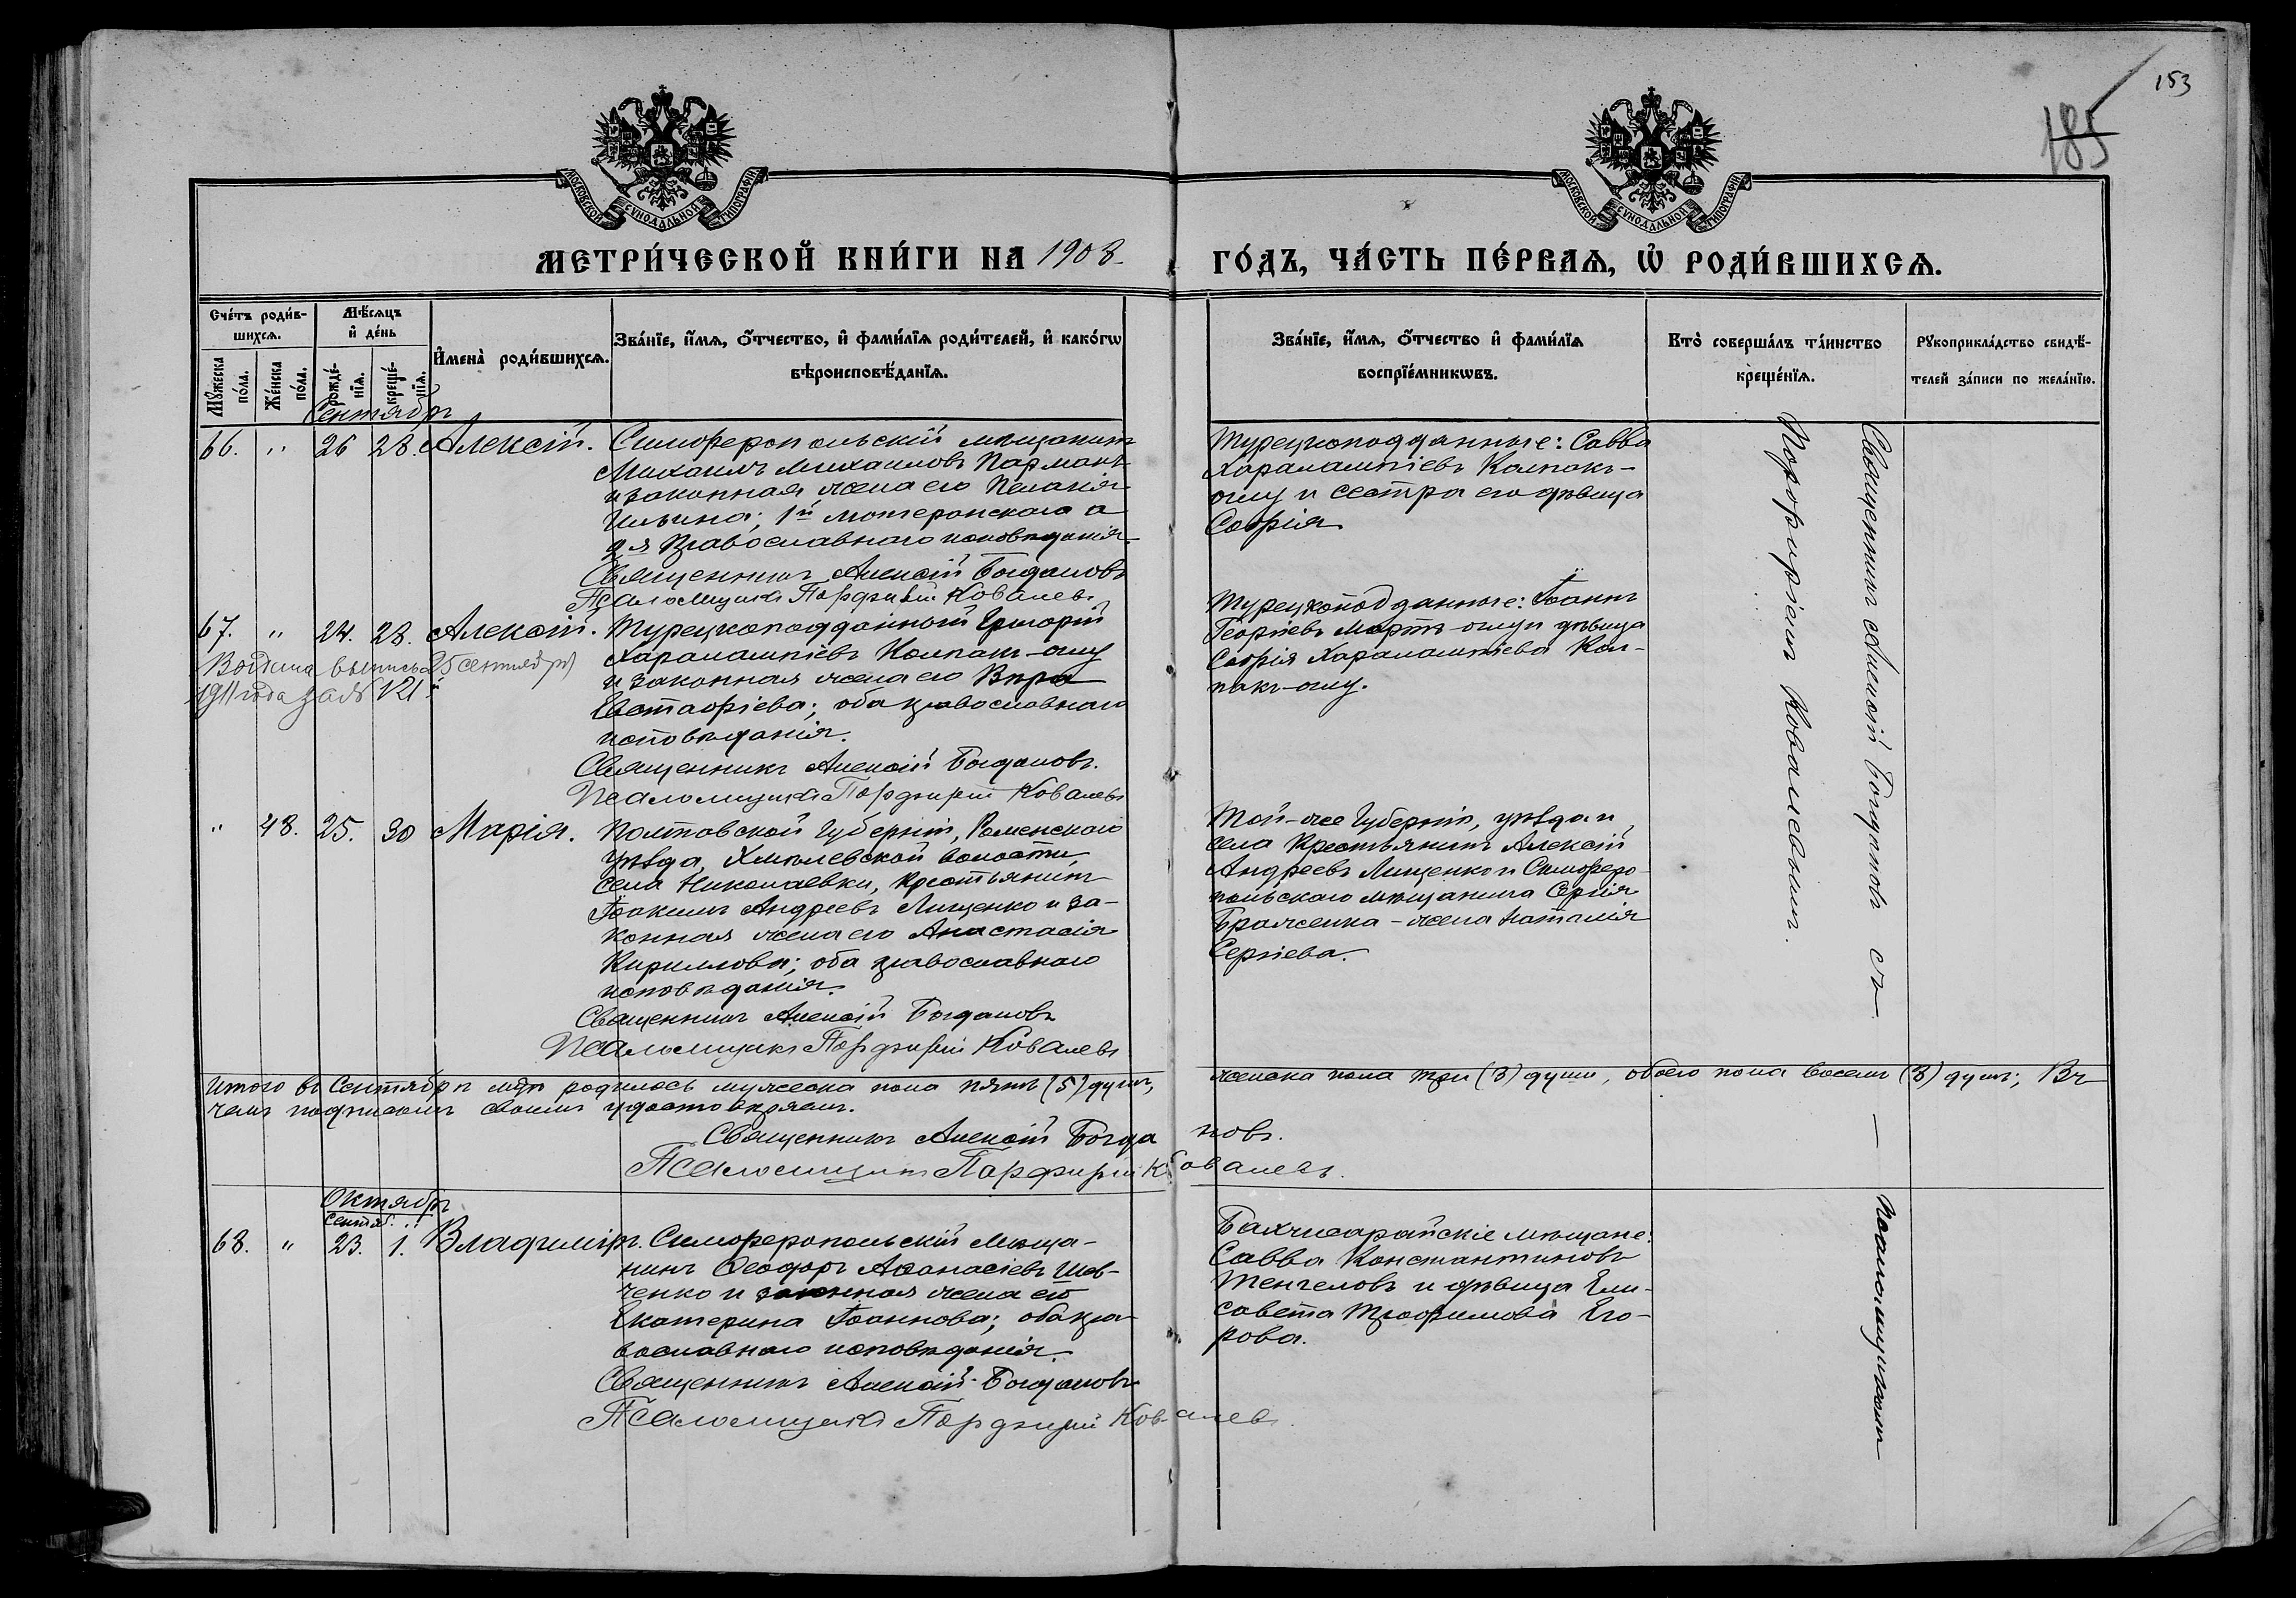 153
185
МОСКОВСКОЙ СѴНОДАЛЬНОЙ ТИПОГРАФІИ
МОСКОВСКОЙ СѴНОДАЛЬНОЙ ТИПОГРАФІИ
МЕТРИ́ЧЕСКОЙ КНИ́ГИ НА 1908. ГО́ДЪ, ЧА́СТЬ ПЕ́РВАЯ, Ѡ РОДИ́ВШИХСЯ.
Счетъ родив-
шихся.
Мужеска пола.
Женска пола.
Мѣсяцъ
и день
рожде-
нія.
креще-
нія.
Имена родившихся.
Званіе, имя, отчество, и фамилія родителей, и какогѡ
вѣроисповѣданія.
Званіе, имя, отчество и фамилія
воспріемникѡвъ.
Кто совершалъ таинство
крещенія.
Рукоприкладство свидѣ-
телей записи по желанію.
Сентябрь
66. " 26 28. Алексій. Симферопольскій мѣщанинъ
Михаилъ Михаиловъ
и законная жена его Пелагія
Ильина; 1й лютеранскаго а
2я Православнаго исповѣданія.
Священникъ Алексій Богдановъ
Псаломщикъ Порфирій Ковалевъ
Турецкоподданные: Савва
Харалампіевъ Колпакъ-
оглу и сестра его дѣвица
Софія
67. " 24. 28. Алексій. Турецкоподданный Григорій
Харалампіевъ Колпакъ-оглу
и законная жена его Вѣра
Евстафіева; оба православнаго
исповѣданія.
Священникъ Алексій Богдановъ.
Псаломщикъ Порфирій Ковалевъ
Выдана выпись 25 сентября
1911 года за № 121
Турецкоподданные: Іоаннъ
Георгіевъ оглу и дѣвица
Софія Харалампіева Кол-
пакъ-оглу.
" 48. 25. 30 Марія. Полтавской Губерніи, Роменскаго
уѣзда, Хмѣлевской волости,
села Николаевки, крестьянинъ
Іоакимъ Андреевъ Лищенко и за-
конная жена его Анастасія
Кириллова; оба православнаго
исповѣданія.
Священникъ Алексій Богдановъ
Псаломщикъ Порфирій Ковалевъ
Той-же Губерніи, уѣзда и
села Крестьянинъ Алексій
Андреевъ Лищенко и Симферо-
польскаго мѣщанина Сергія
Браженка - жена Наталія
Сергіева.
Священникъ Алексій Богдановъ съ — Псаломщикомъ
Порфиріемъ Ковалевымъ.
Итого въ Сентябрѣ мцѣ родилось мужеска пола пять (5) душъ, женска пола три (3) души, обоего пола восемь (8) душъ; Въ
чемъ подписомъ своимъ удостовѣряемъ.
Священникъ Алексій Богдановъ.
Псаломщикъ Порфирій Ковалевъ.
Октябрь
Сентяб.
68. " 23. 1. Владиміръ. Симферопольскій Мѣща-
нинъ Ѳеодоръ Аѳанасіевъ Шев-
ченко и законная жена его
Екатерина Іоаннова; оба пра-
вославнаго исповѣданія.
Священникъ Алексій Богдановъ
Псаломщикъ Порфирій Ковалевъ.
Бахчисарайскіе мѣщане:
Савва Константиновъ
Тенчеловъ и дѣвица Ели-
савета Трофимова Его-
рова.